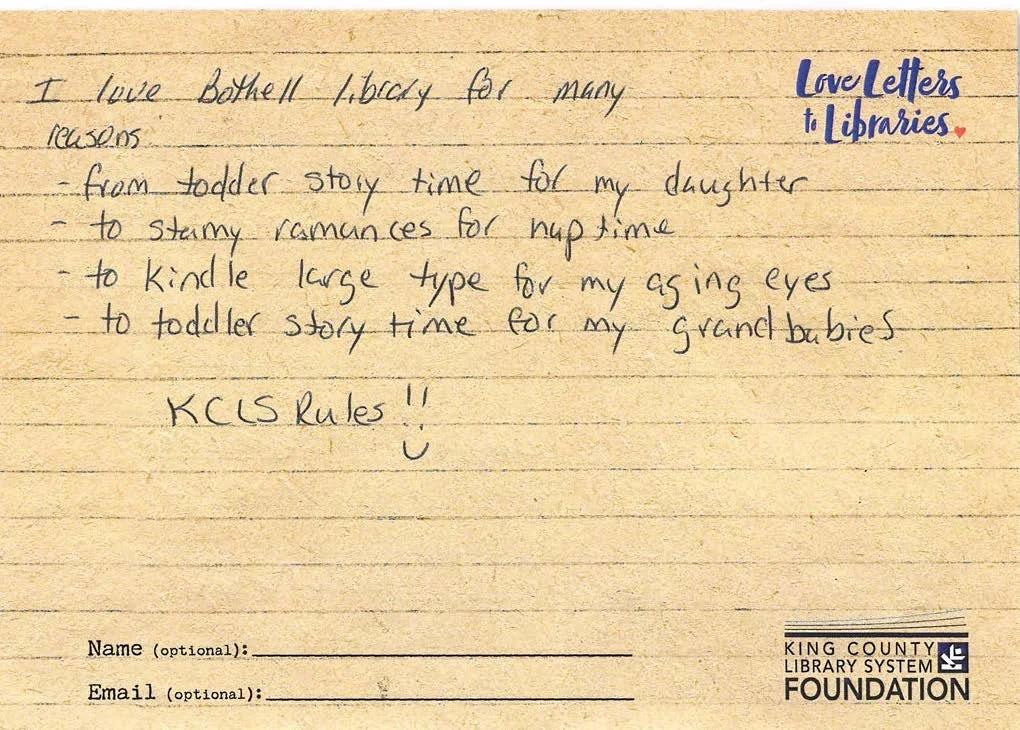 I love Bothell library for many
reasons
- from todder story time for my daughter
- to stamy ramances for nap time
- to kindle large type for my aging eyes
- to toddler story time for my grand babies
KCLS Rules !!
Love Letters
to Libraries.
Name (optional):
Email (optional):
KING COUNTY
LIBRARY SYSTEM
FOUNDATION